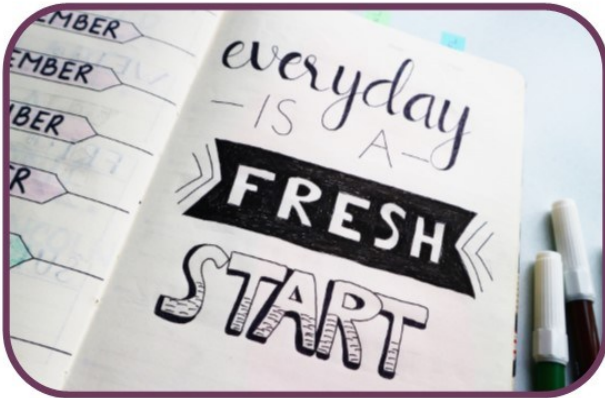 EMBER
EMBER
BER
R
everyday
IS A
FRESH
START